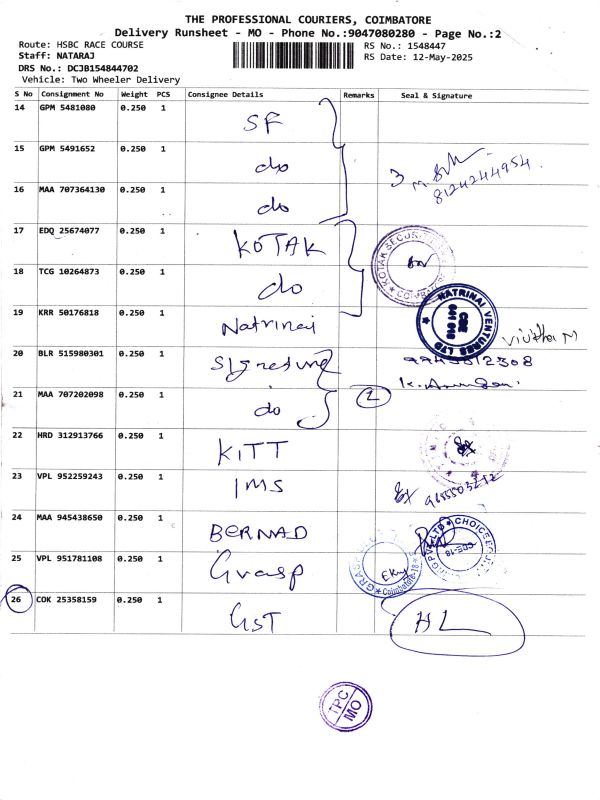 THE PROFESSIONAL COURIERS, COIMBATORE
Delivery Runsheet - MO - Phone No.:9047080280 - Page No.:2
Route: HSBC RACE COURSE
RS No.: 1548447
Staff: NATARAJ
RS Date: 12-May-2025
DRS No.: DCJB154844702
Vehicle: Two Wheeler Delivery
S No Consignment No Weight PCS Consignee Details Remarks Seal & Signature
14 GPM 5481080 0.250 1 SF
15 GPM 5491652 0.250 1 do
3 8124244954
16 MAA 707364130 0.250 1 do
17 EDQ 25674077 0.250 1 KOTAK
KOTAK SECURIT
COIMBATOR
18 TCG 10264873 0.250 1 do
19 KRR 50176818 0.250 1 Natrinai
NATRINAI VENTURES LTD
CBE
641 018
20 BLR 515980301 0.250 1 Signature
21 MAA 707202098 0.250 1 do
2
22 HRD 312913766 0.250 1 KITT
23 VPL 952259243 0.250 1 IMS
24 MAA 945438650 0.250 1 BERNAD
CHOICE
CBE-18
25 VPL 951781108 0.250 1 Grasp
GRAS
Coimbatore-18
26 COK 25358159 0.250 1 GST HL
TPC
MO